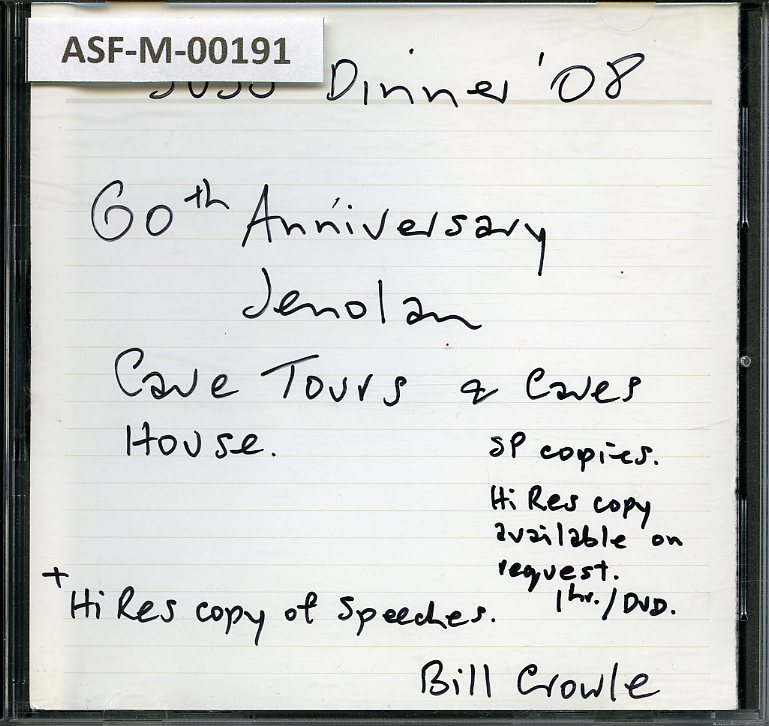 ASF-M-00191
Dinner '08
60th Anniversary
Jenolan
Cave Tours & Caves
House.
SP copies.
Hi Res copy
available on
request.
1hr./DVD.
+
Hi Res copy of speeches.
Bill Crowle